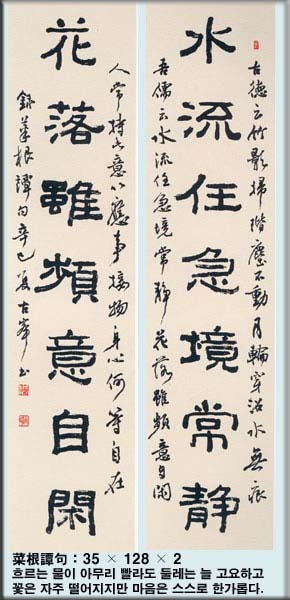 古德云竹影掃階塵不動月輪穿沼水無痕
水流任急境常静
吾儒云水流任急境常静花落雖頻意自閑
人常持此意以應事接物身心何等自在
花落雖頻意自閑
錄菜根譚句辛巳夏古峯书
菜根譚句 : 35 × 128 × 2
흐르는 물이 아무리 빨라도 둘레는 늘 고요하고
꽃은 자주 떨어지지만 마음은 스스로 한가롭다.